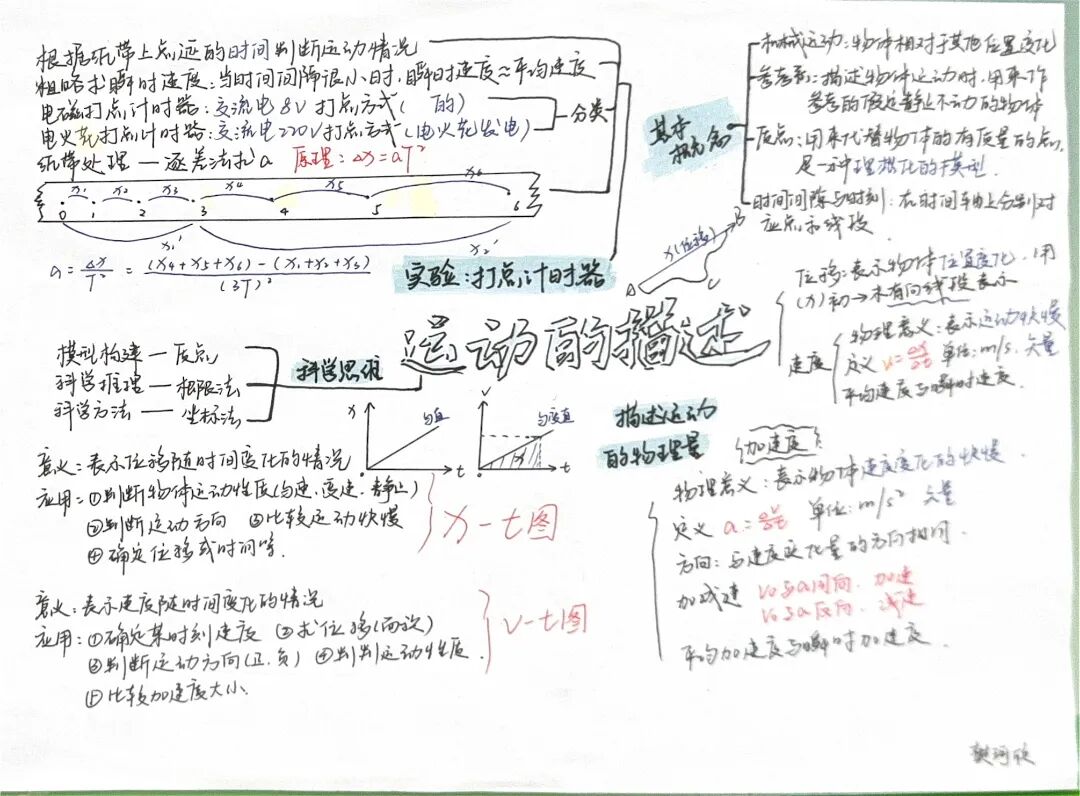 根据纸带上点迹的时间判断运动情况
粗略求瞬时速度：当时间间隔很小时，瞬时速度≈平均速度
电磁打点计时器：交流电8V 打点方式( 的)
电火花打点计时器：交流电220V打点方式(电火花发电)
分类
纸带处理 — 逐差法求a 原理：Δx=aT²
x₁ x₂ x₃ x₄ x₅ x₆
0 1 2 3 4 5 6
x₁' x₂'
a = Δx/T² = (x₄+x₅+x₆)-(x₁+x₂+x₃)/(3T)²
实验：打点计时器
基本
概念
机械运动：物体相对于其他位置变化
参考系：描述物体运动时，用来作
参考的假定静止不动的物体
质点：用来代替物体的有质量的点，
是一种理想化的模型．
时间间隔与时刻：在时间轴上分别对
应点和线段．
A x(位移) B
位移：表示物体位置变化．用
(x) 初→末有向线段表示
速度
物理意义：表示运动快慢
定义 v=Δx/Δt 单位：m/s．矢量
平均速度与瞬时速度．
运动的描述
科学思维
模型构建 — 质点
科学推理 — 极限法
科学方法 — 坐标法
x 匀直 t
v 匀变直 x t
描述运动
的物理量
加速度
物理意义：表示物体速度变化的快慢．
定义 a=Δv/Δt 单位：m/s² 矢量
方向：与速度变化量的方向相同．
加减速 v₀与a同向．加速
v₀与a反向．减速
平均加速度与瞬时加速度．
意义：表示位移随时间变化的情况
应用：①判断物体运动性质(匀速．变速．静止)
②判断运动方向 ③比较运动快慢
④确定位移或时间等．
x-t图
意义：表示速度随时间变化的情况
应用：①确定某时刻速度 ②求位移(面积)
③判断运动方向(正．负) ④判判运动性质．
⑤比较加速度大小．
v-t图
樊珂欣